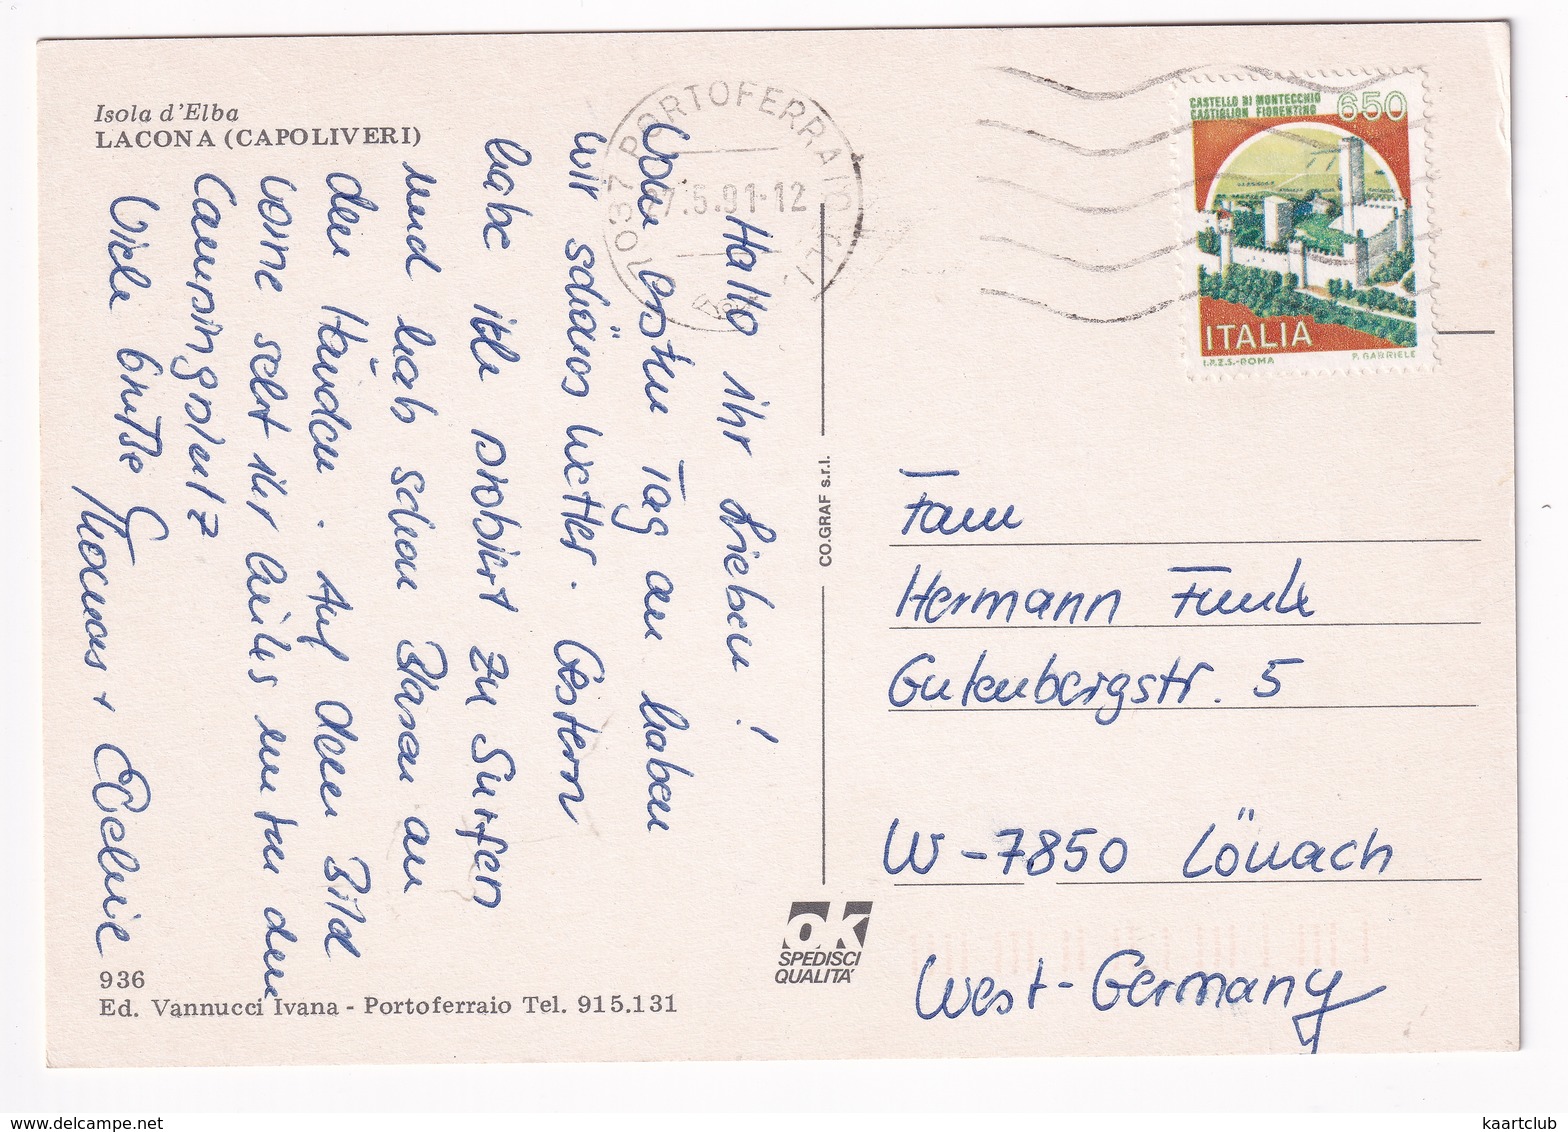 Isola d'Elba
LACONA (CAPOLIVERI)
Hallo ihr Lieben!
Vom ersten Tag an haben
wir schönes Wetter. Gestern
habe ich probiert zu Surfen
und hab schon Blasen an
den Händen. Auf dem Bild
vorne seht ihr links unten den
Campingplatz
Viele Grüße
Thomas +
936
Ed. Vannucci Ivana - Portoferraio Tel. 915.131
CO.GRAF s.r.l.
OK
SPEDISCI
QUALITA'
57037 PORTOFERRAIO
7.5.91-12
CASTELLO DI MONTECCHIO
CASTIGLION FIORENTINO
650
ITALIA
I.P.Z.S.-ROMA
P. GABRIELE
Fam
Hermann Funk
Gutenbergstr. 5
W-7850 Lörrach
West-Germany
www.delcampe.net
kaartclub